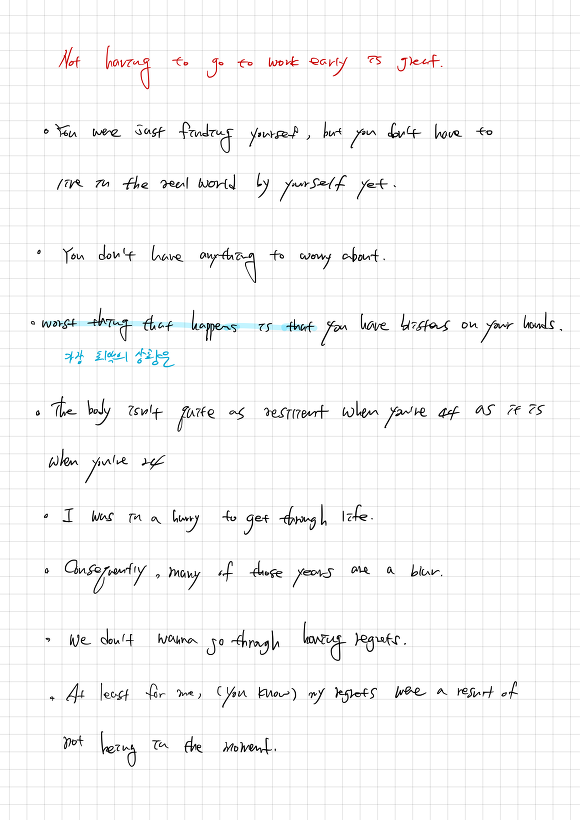 Not having to go to work early is great.
• You were just finding yourself, but you don't have to
live in the real world by yourself yet.
• You don't have anything to worry about.
• worst thing that happens is that you have blisters on your hands.
가장 최악의 상황은
• The body isn't quite as resilient when you're 44 as it is
when you're 24
• I was in a hurry to get through life.
• Consequently, many of those years are a blur.
• We don't wanna go through having regrets.
• At least for me, (you know) my regrets were a result of
not being in the moment.